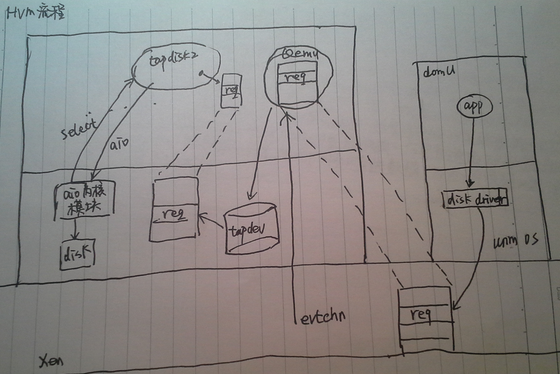 Hvm 流程
tapdisk2
req
Qemu
req
domU
app
select
aio
aio内核
模块
disk
req
tapdev
disk driver
evtchn
req
Xen